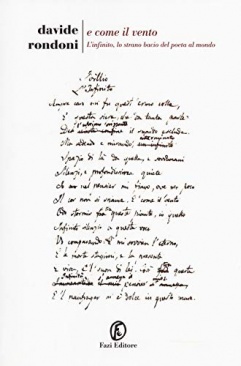 davide
rondoni
e come il vento
L'infinito, lo strano bacio del poeta al mondo
Idillio
L'Infinito
Sempre caro mi fu quest'ermo colle,
E questa siepe, che da tanta parte
l'ultimo orizzonte
De il guardo esclude.
Ma sedendo e mirando,
Spazio di là da quella, e sovrumani
Silenzi, e profondissima quiete
Io nel pensier mi fingo, ove per poco
Il cor non si spaura. E come il vento
Odo stormir fra queste piante, io quello
Infinito silenzio a questa voce
Vo comparando: e mi sovvien l'eterno,
E le morte stagioni, e la presente
E viva, e 'l suon di lei. Così fra questa
E 'l naufragar m'è dolce in questo mare.
Fazi Editore